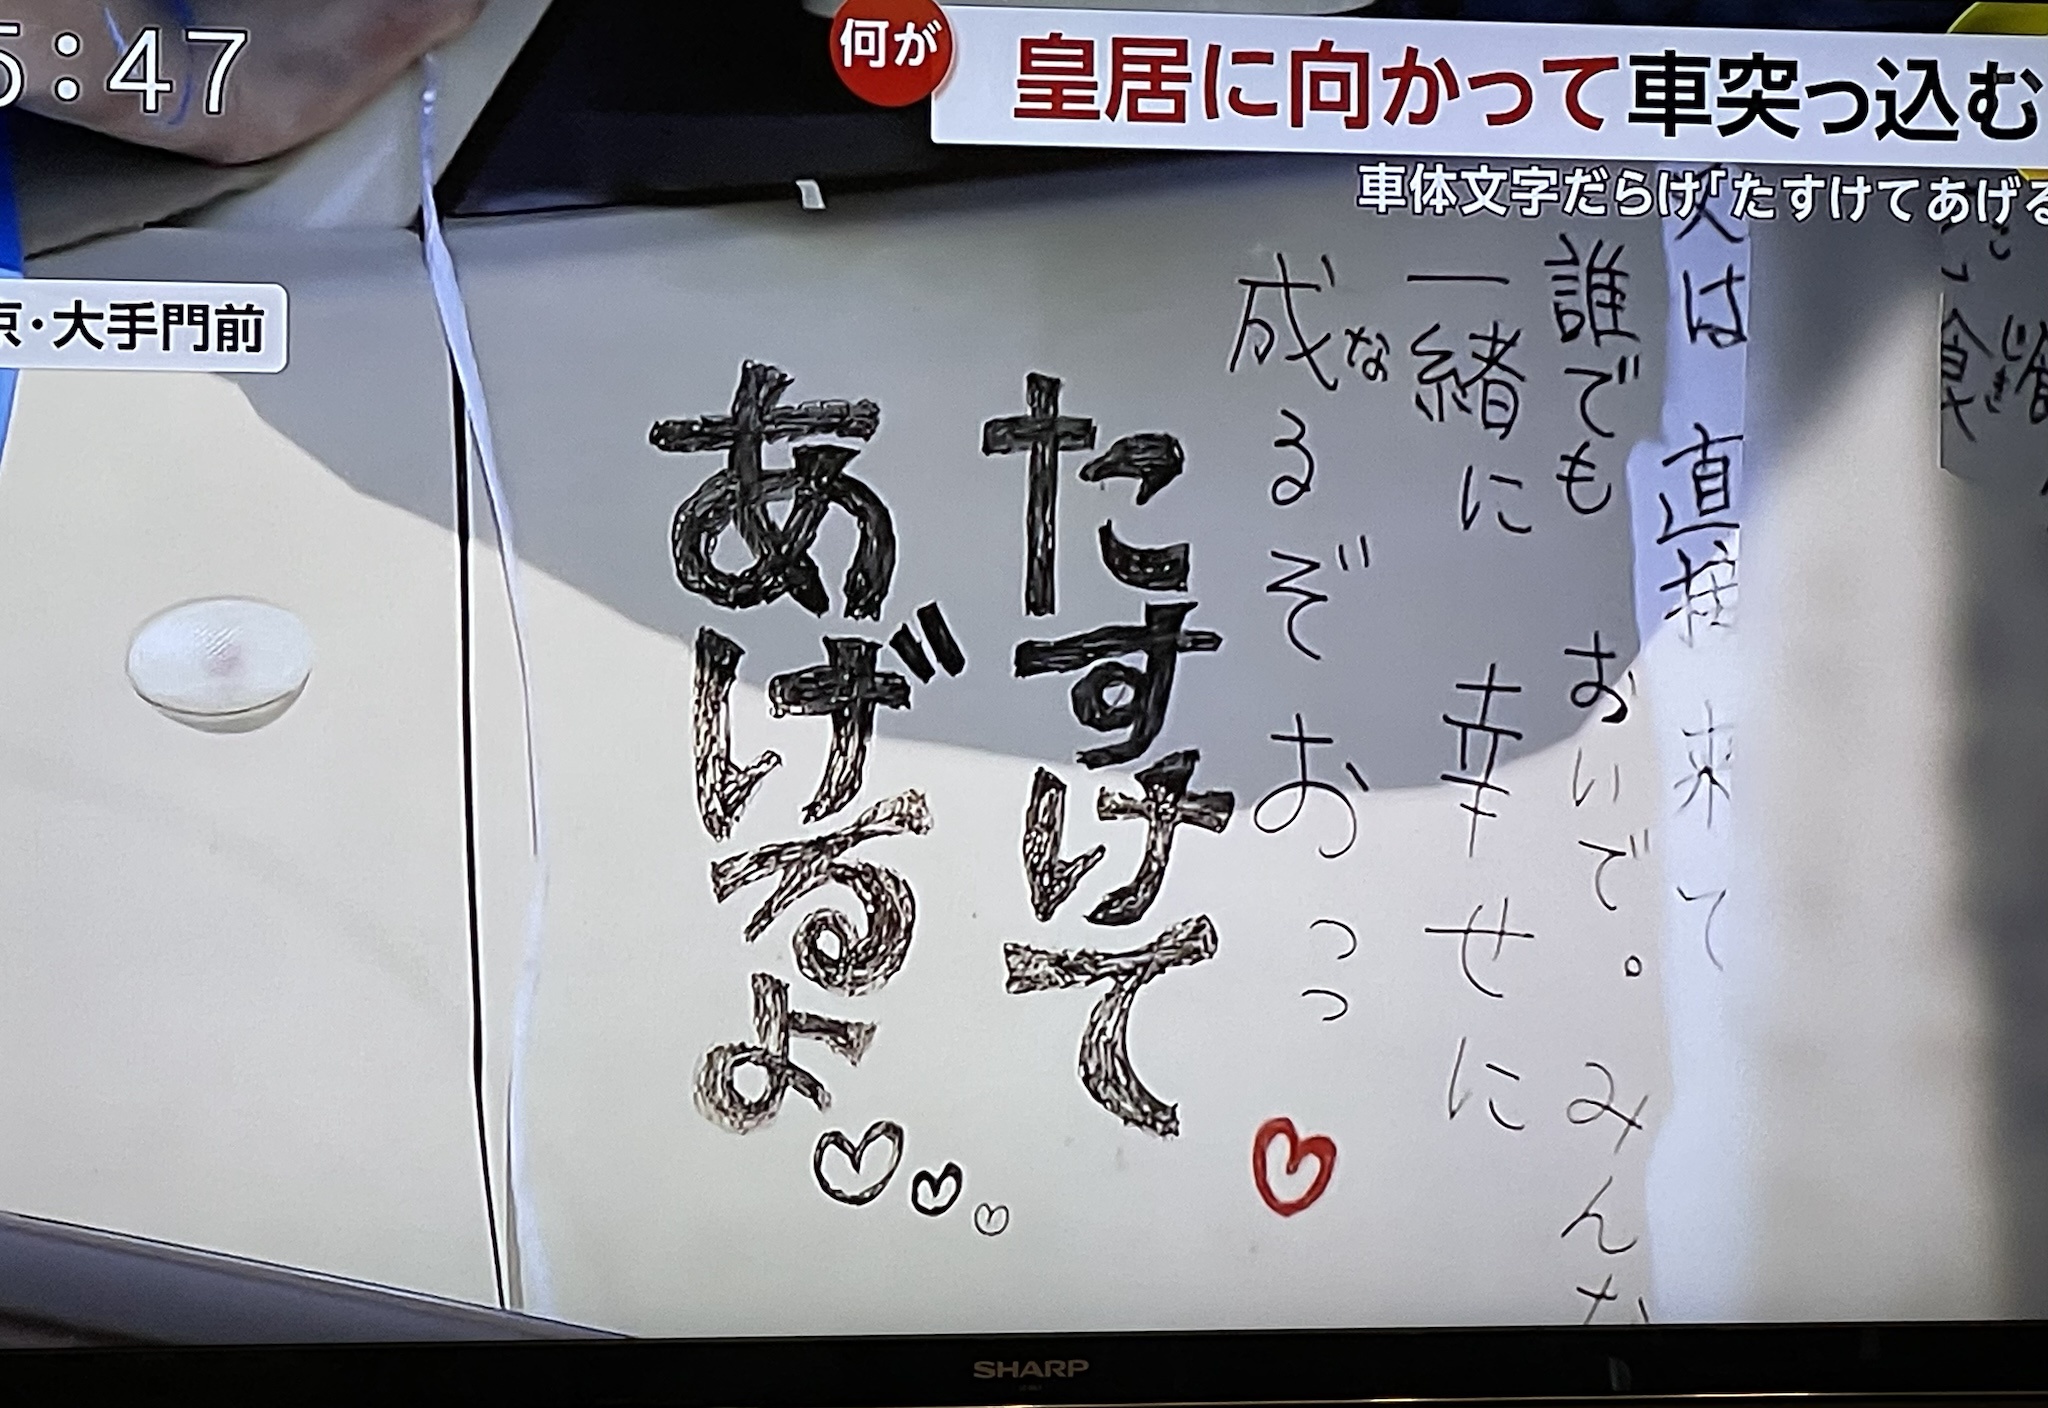 5:47
何が
皇居に向かって車突っ込む
車体文字だらけ「たすけてあげる
京・大手門前
又は 直接 来て
誰でも おいで。 みんな
一緒に 幸せに
成るぞ おっっ
な
たすけて
あげるよ
SHARP